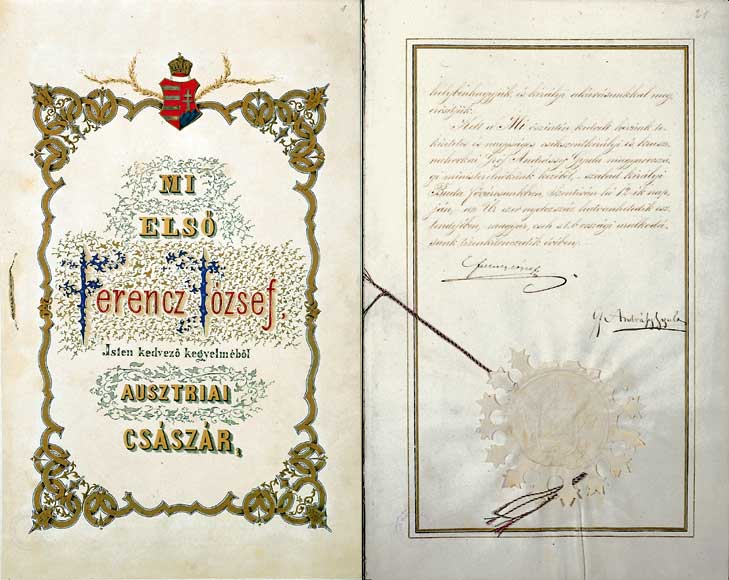 MI
ELSŐ
Ferencz József,
Isten kedvező kegyelméből
AUSZTRIAI
CSÁSZÁR,
21
helybenhagyjuk, és királyi akaratunkkal meg
erősítjük.
Kelt a Mi őszintén kedvelt hívünk te
kintetes és nagyságos csíkszentkirályi és krasz
nahorkai Gróf Andrássy Gyula magyarorszá
gi miniszterelnökünk kezéből, szabad királyi
Buda fővárosunkban, szentiván hó 12-ik nap
ján, az Úr ezer nyolczszáz hatvanhetedik esz
tendejében, magyar, cseh s t. országi uralkodá
sunk tizenkilenczedik évében.
Ferencz József
Gr Andrássy Gyula